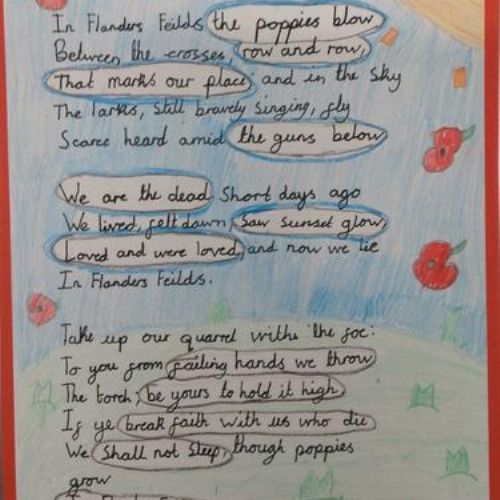 In Flanders Feilds the poppies blow
Between the crosses, row and row,
That marks our place; and in the sky
The larks, still bravely singing, fly
Scarce heard amid the guns below
We are the dead. Short days ago
We lived, felt dawn, Saw sunset glow,
Loved and were loved, and now we lie
In Flanders Feilds.
Take up our quarrel withs the foe:
To you from failing hands we throw
The torch; be yours to hold it high
If ye break faith with us who die
We shall not sleep, though poppies
grow